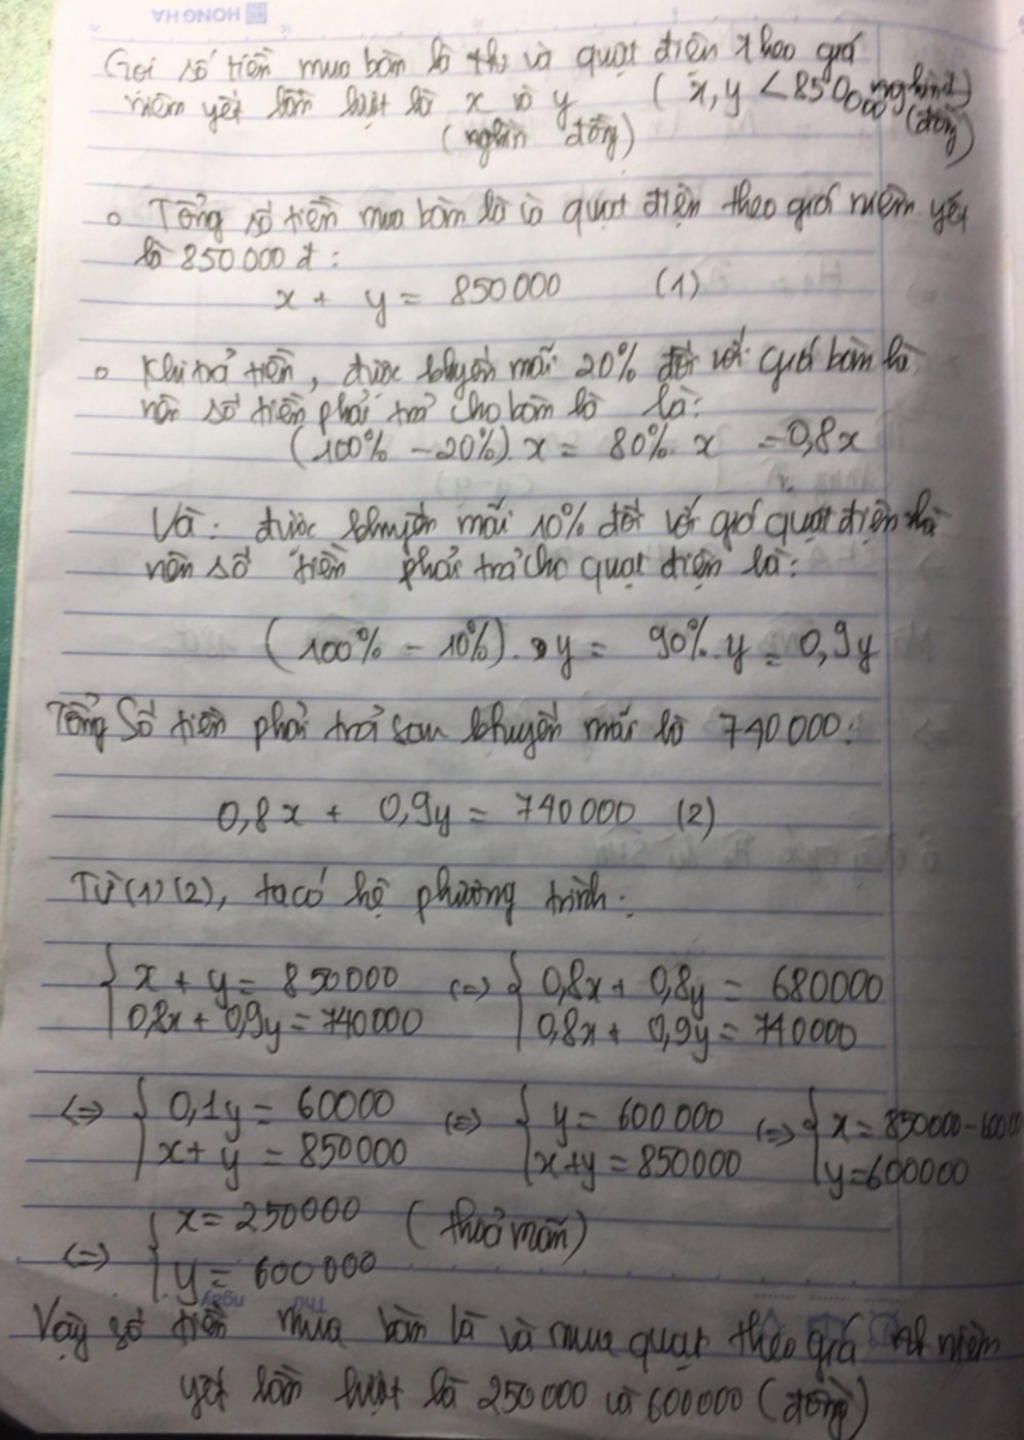 HONG HA
Gọi số tiền mua bàn là và quạt điện theo giá
niêm yết lần lượt là x và y (x, y < 850000
(nghìn đồng) (đồng)
o Tổng số tiền mua bàn là và quạt điện theo giá niêm yết
là 850000 đ:
x + y = 850000 (1)
o Khi trả tiền, được khuyến mãi 20% đối với giá bàn là
nên số tiền phải trả cho bàn là là:
(100% - 20%).x = 80%.x = 0,8x
Và: được khuyến mãi 10% đối với giá quạt điện
nên số tiền phải trả cho quạt điện là:
(100% - 10%).y = 90%.y = 0,9y
Tổng số tiền phải trả sau khuyến mãi là 740000:
0,8x + 0,9y = 740000 (2)
Từ (1) (2), ta có hệ phương trình:
x + y = 850000 (=) 0,8x + 0,8y = 680000
0,8x + 0,9y = 740000 0,8x + 0,9y = 740000
<=> 0,1y = 60000 (=) y = 600000 (=) x = 850000 - 600000
x + y = 850000 x + y = 850000 y = 600000
x = 250000 (thoả mãn)
<=> y = 600000
Thứ ngày
Vậy số tiền mua bàn là và mua quạt theo giá niêm
yết lần lượt là 250000 và 600000 (đồng)